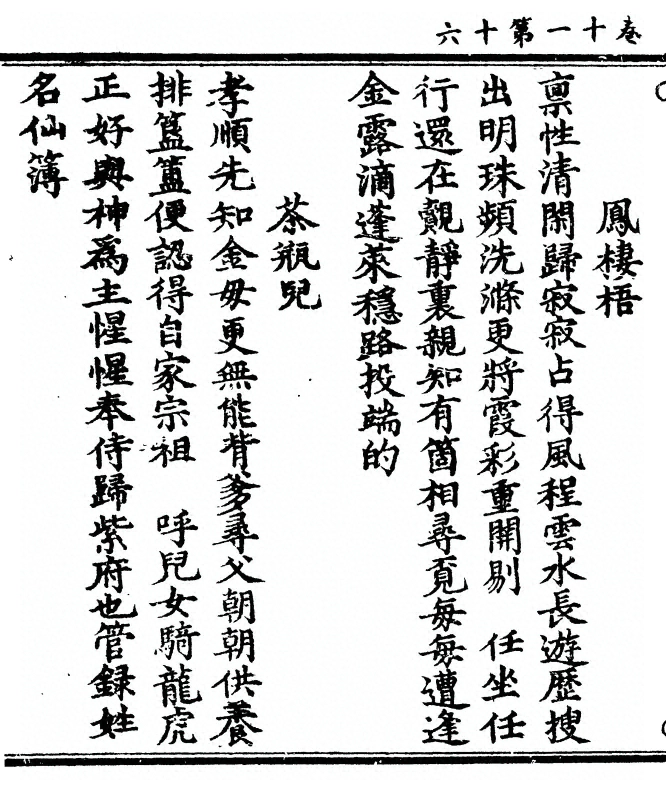 卷十一第十六
鳳棲梧
稟性清閑歸寂寂占得風程雲水長遊歷搜
出明珠頻洗滌更將霞彩重開剔　任坐任
行還在覿靜裏親知有箇相尋覓每每遭逢
金露滴蓬萊穩路投端的
茶瓶兒
孝順先知金母更無能背爹尋父朝朝供養
排簋簠便認得自家宗祖　呼兒女騎龍虎
正好與神爲主惺惺奉侍歸紫府也管錄姓
名仙簿